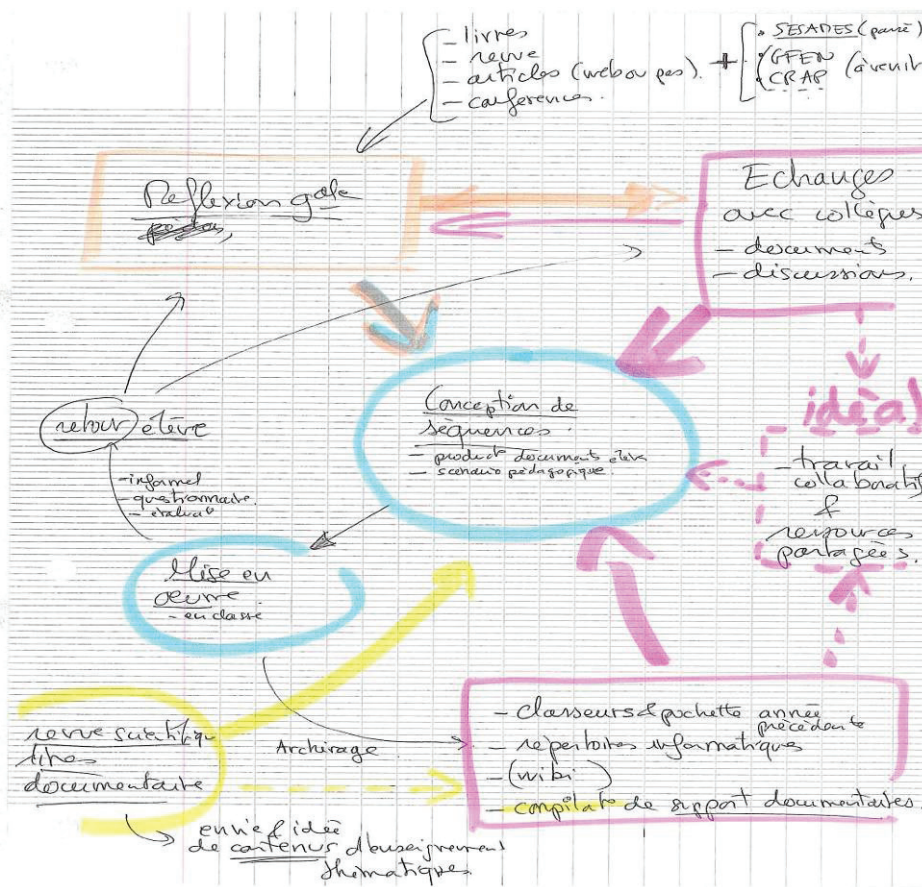 - livres
- revue
- articles (web ou pas).
- conférences.
+
• SESADES (passé)
• GFEN
• CRAP (à venir
Reflexion gale
Echanges
avec collègues
- documents
- discussions.
retour élève
- informel
- questionnaire.
- évaluat°
Conception de
séquences.
- product° documents élève
- scénario pédagogique.
idéal
- travail
collaboratif
&
ressources
partagées.
Mise en
œuvre.
- en classe
revue scientifiqu
livres
documentaire
Archivage
- classeurs & pochette année
précédente
- répertoires informatiques
- (wiki)
- compilat° de support documentaires.
envie & idée
de contenus d'enseignement
thématiques